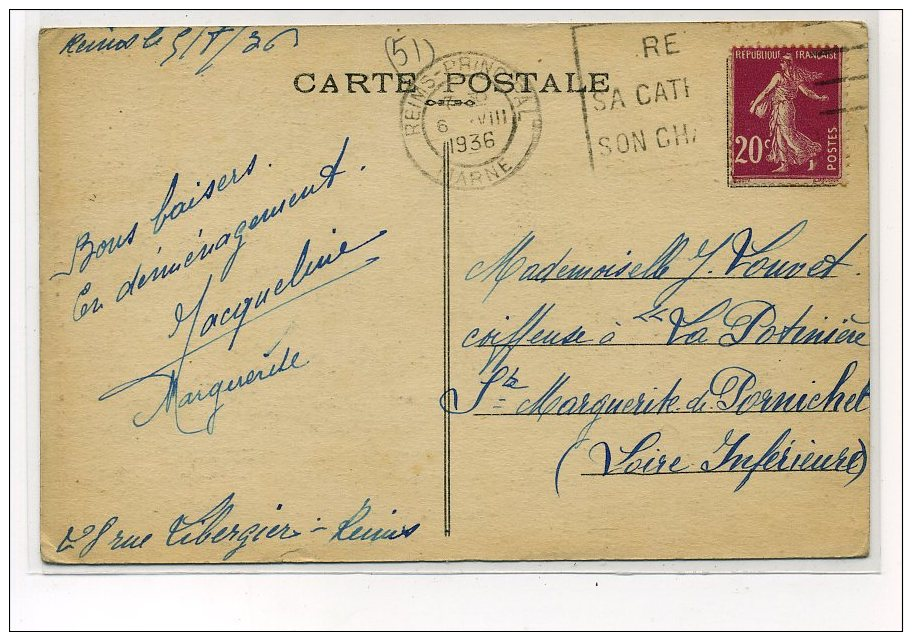 Reims le 5/8/36
(51)
CARTE POSTALE
REIMS-PRINCIPAL
6 VIII
1936
MARNE
RE
SA CATH
SON CHA
REPUBLIQUE FRANÇAISE
20c
POSTES
Bons baisers.
En déménagement.
Jacqueline
Marguerite
28 rue Libergier - Reims
Mademoiselle J. Louvet.
coiffeuse à "La Potinière
Ste Marguerite de Pornichet
(Loire Inférieure)